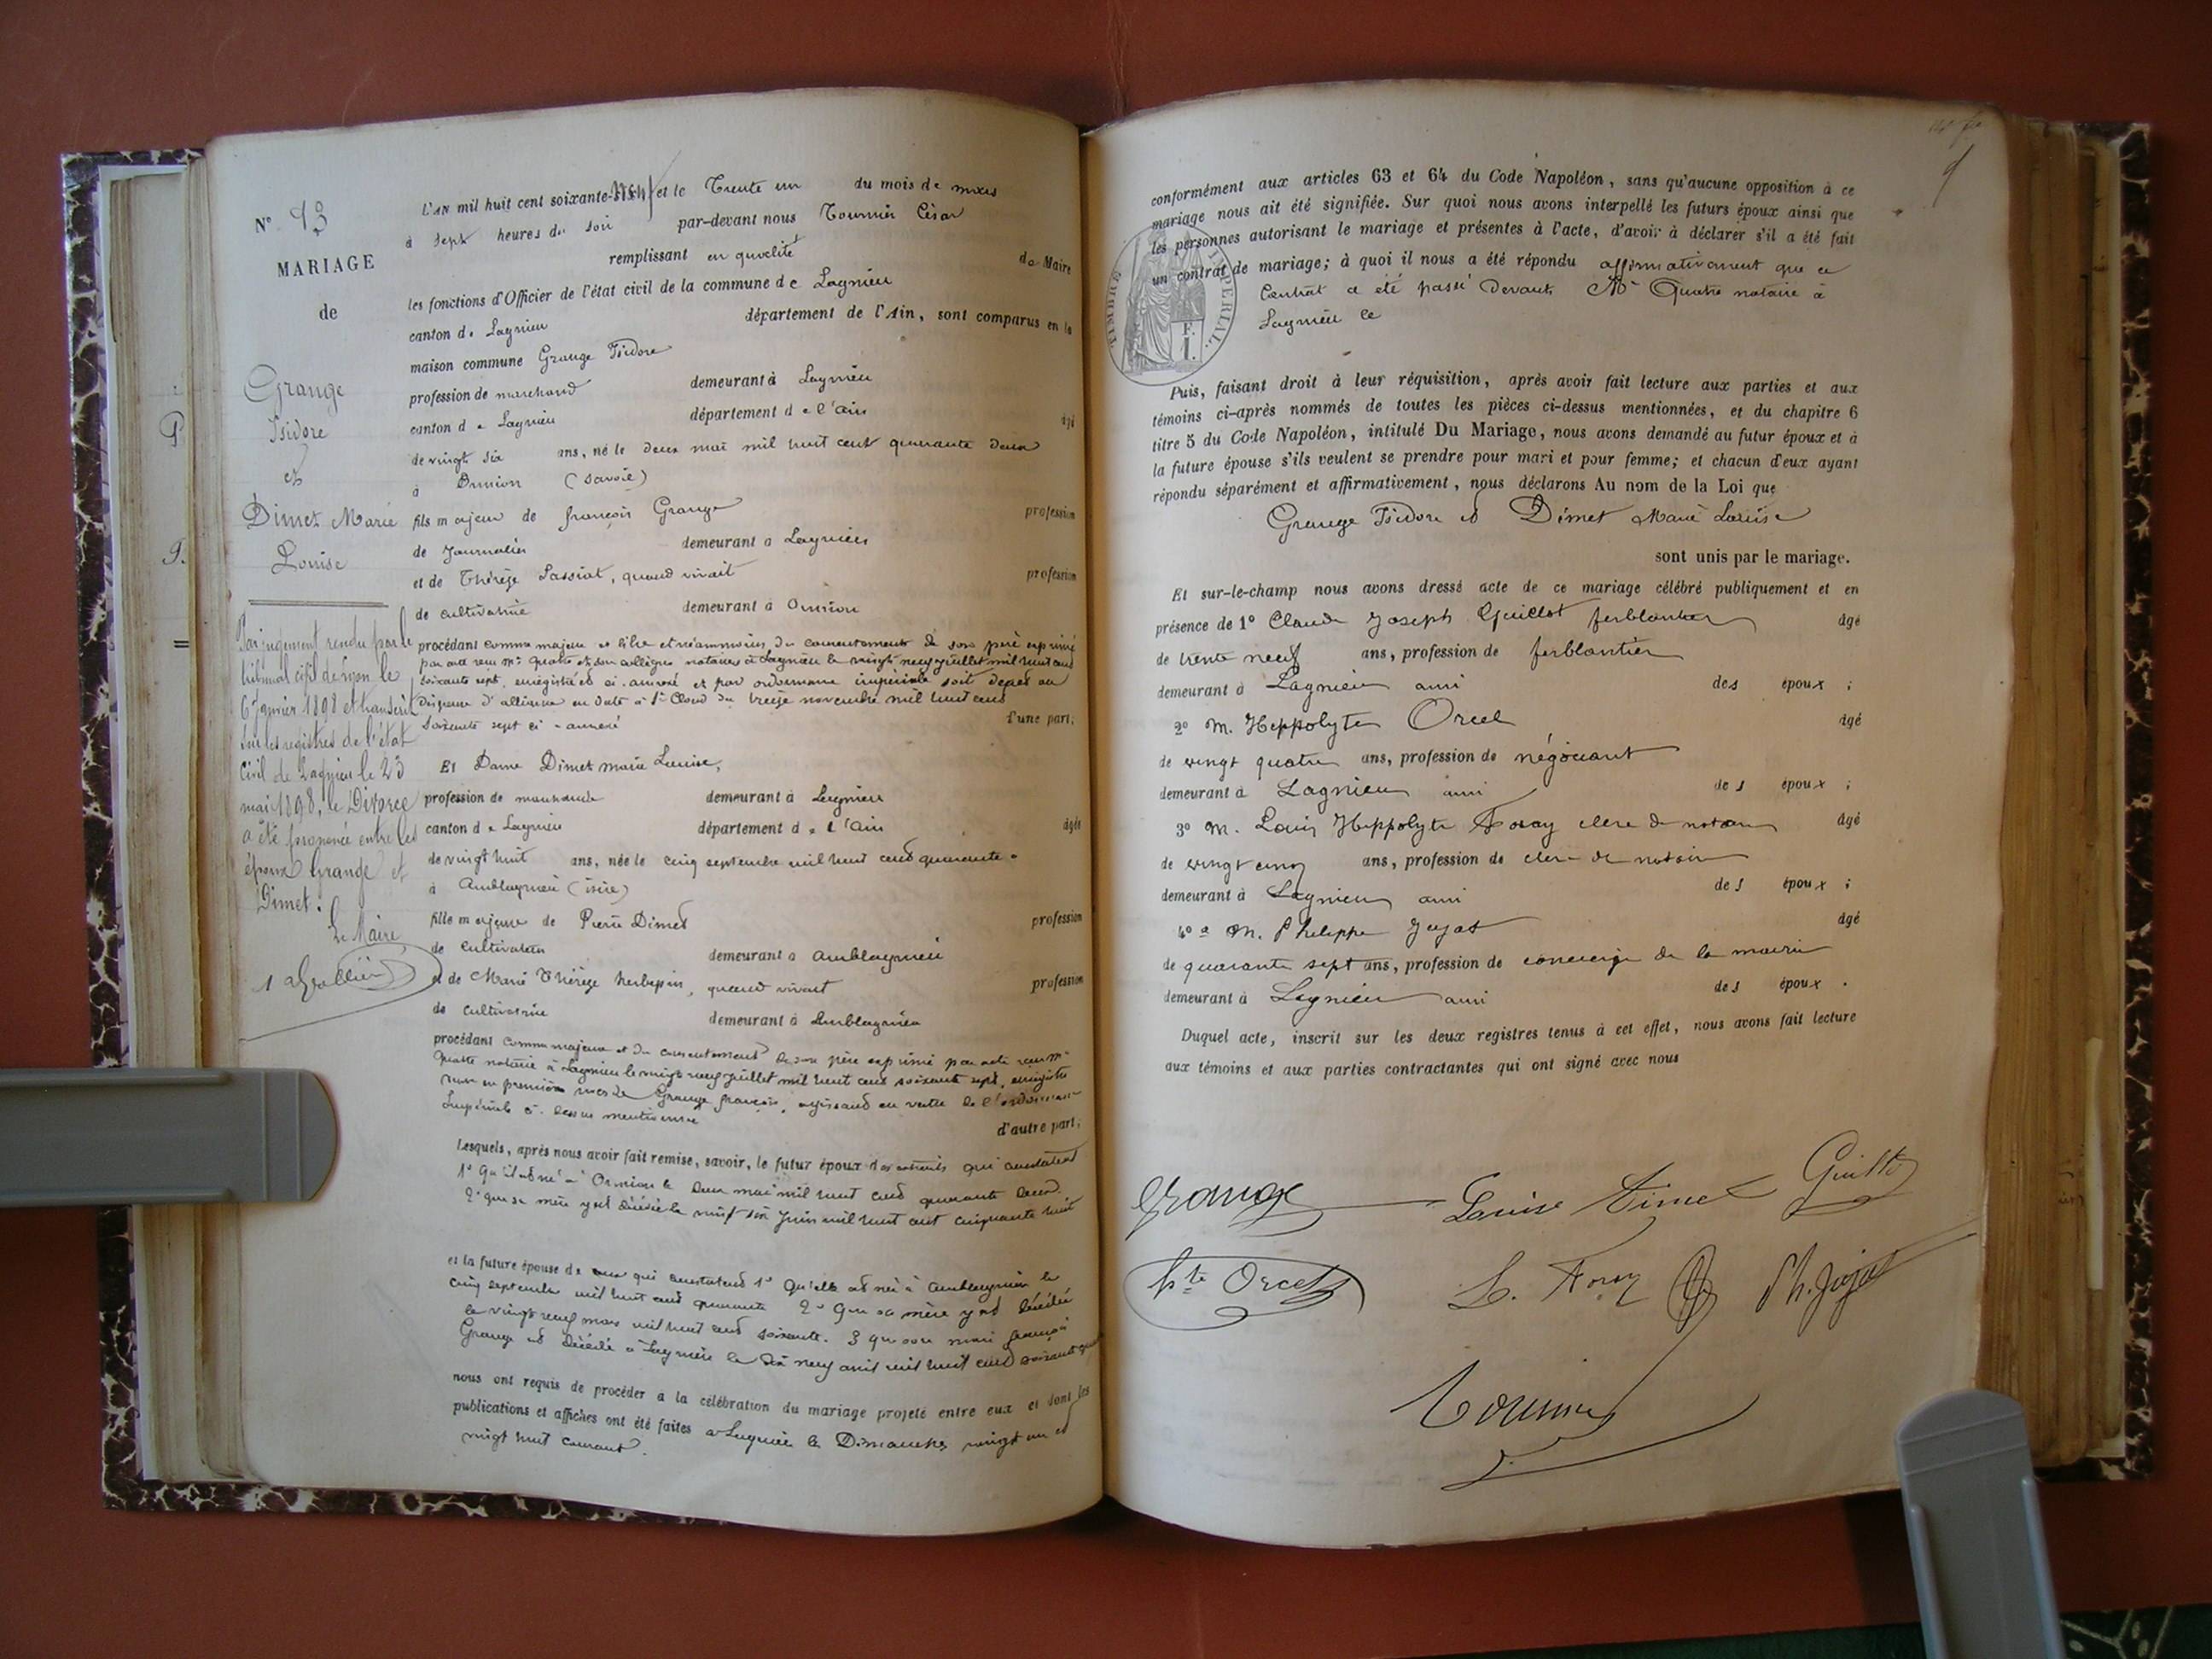 N° 13
MARIAGE
de
Grange
Isidore
et
Dimet Marie
Louise
Par jugement rendu par le
tribunal civil de Lyon le
6 janvier 1898 et transcrit
sur les registres de l'état
civil de Lagnieu le 23
mai 1898, le Divorce
a été prononcé entre les
époux Grange et
Dimet.
Le Maire
L'AN mil huit cent soixante- et le Trente un du mois de mars
à sept heures du soir par-devant nous Tournier César
remplissant en qualité de Maire
les fonctions d'Officier de l'état civil de la commune de Lagnieu
canton de Lagnieu département de l'Ain, sont comparus en la
maison commune Grange Isidore
profession de marchand demeurant à Lagnieu
canton de Lagnieu département de l'ain âgé
de vingt six ans, né le deux mai mil huit cent quarante deux
à Onnion (Savoie)
fils majeur de françois Grange profession
de journalier demeurant à Lagnieu
et de Thérèze Sassiat, quand vivait profession
de cultivatrice demeurant à Onnion
procédant comme majeur et libre et néanmoins du consentement de son père exprimé
par acte reçu Me Quatre et son collègue notaires à Lagnieu le vingt neuf juillet mil huit cent
soixante sept, enregistré et ci-annexé et par ordonnance impériale soit decret ou
dispense d'alliance en date à St Cloud du treize novembre mil huit cent
soixante sept ci-annexé d'une part;
Et Dame Dimet marie Louise,
profession de marchande demeurant à Lagnieu
canton de Lagnieu département de l'ain âgée
de vingt huit ans, née le cinq septembre mil huit cent quarante
à Amblagnieu (isère)
fille majeure de Pierre Dimet profession
de cultivateur demeurant à amblagnieu
et de Marie Thérèze, quand vivait profession
de cultivatrice demeurant à Amblagnieu
procédant comme majeure et du consentement de son père exprimé par acte reçu Me
Quatre notaire à Lagnieu le vingt neuf juillet mil huit cent soixante sept, enregistré
veuve en premières noces de Grange françois, agissant en vertu de l'ordonnance
Impériale ci-dessus mentionnée d'autre part;
Lesquels, après nous avoir fait remise, savoir, le futur époux des extraits qui constatent
1° Qu'il est né à Onnion le deux mai mil huit cent quarante deux.
2° que sa mère y est décédée le vingt six juin mil huit cent cinquante huit
et la future épouse de ceux qui constatent 1° Qu'elle est née à Amblagnieu le
cinq septembre mil huit cent quarante 2° Que sa mère y est décédée
le vingt neuf mars mil huit cent soixante. 3° que son mari françois
Grange est décédé à Lagnieu le dix neuf avril mil huit cent soixante
nous ont requis de procéder à la célébration du mariage projeté entre eux et dont les
publications et affiches ont été faites à Lagnieu les Dimanches vingt un et
vingt huit courant.
conformément aux articles 63 et 64 du Code Napoléon, sans qu'aucune opposition à ce
mariage nous ait été signifiée. Sur quoi nous avons interpellé les futurs époux ainsi que
les personnes autorisant le mariage et présentes à l'acte, d'avoir à déclarer s'il a été fait
un contrat de mariage; à quoi il nous a été répondu affirmativement que ce
Contrat a été passé devant Me Quatre notaire à
Lagnieu le
TIMBRE IMPÉRIAL
F.
1.
Puis, faisant droit à leur réquisition, après avoir fait lecture aux parties et aux
témoins ci-après nommés de toutes les pièces ci-dessus mentionnées, et du chapitre 6
titre 5 du Code Napoléon, intitulé Du Mariage, nous avons demandé au futur époux et à
la future épouse s'ils veulent se prendre pour mari et pour femme; et chacun d'eux ayant
répondu séparément et affirmativement, nous déclarons Au nom de la Loi que
Grange Isidore et Dimet Marie Louise
sont unis par le mariage.
Et sur-le-champ nous avons dressé acte de ce mariage célébré publiquement et en
présence de 1° Claude Joseph Guillot ferblantier âgé
de trente neuf ans, profession de ferblantier
demeurant à Lagnieu ami des époux ;
2° M. Hippolyte Orcel âgé
de vingt quatre ans, profession de négociant
demeurant à Lagnieu ami des époux ;
3° M. Louis Hippolyte Foray clerc de notaire âgé
de vingt cinq ans, profession de clerc de notaire
demeurant à Lagnieu ami des époux ;
4° M. Philippe Jujat âgé
de quarante sept ans, profession de concierge de la mairie
demeurant à Lagnieu ami des époux .
Duquel acte, inscrit sur les deux registres tenus à cet effet, nous avons fait lecture
aux témoins et aux parties contractantes qui ont signé avec nous
Grange Louise Dimet Guillot
hte Orcel L. Foray Ph. Jujat
Tournier